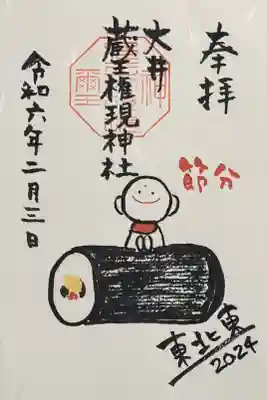 奉拝
節分
大井
蔵王権現神社
令和六年二月三日
東北東
2024